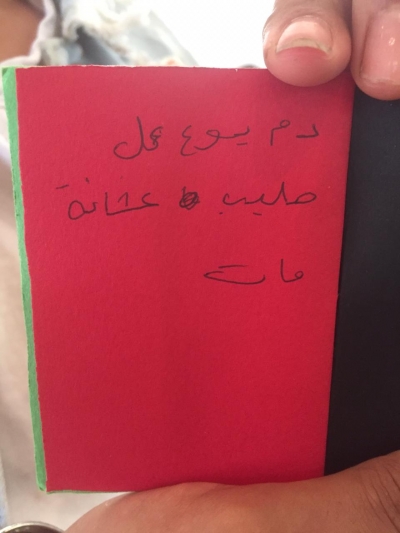 دم يسوع عل
صليب عشانة
مات